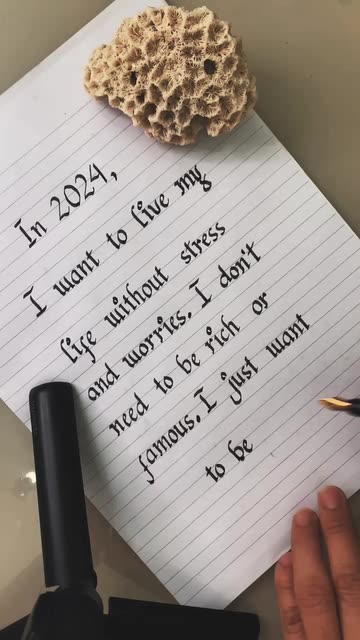 In 2024,
I want to live my
life without stress
and worries. I don't
need to be rich or
famous. I just want
to be